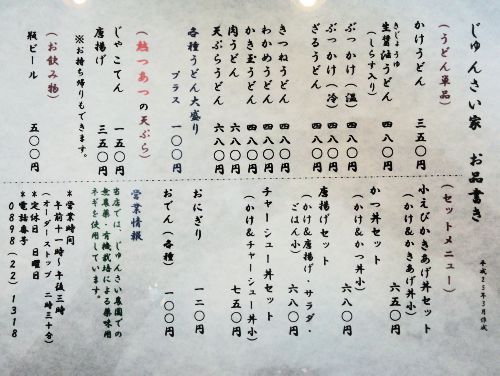 じゅんさい家 お品書き
平成25年3月作成
(うどん単品)
かけうどん 三五〇円
きじょうゆ
生醤油うどん 四八〇円
(しらす入り)
ぶっかけ(温) 四八〇円
ぶっかけ(冷) 四八〇円
ざるうどん 四八〇円
きつねうどん 四八〇円
わかめうどん 四八〇円
かき玉うどん 四八〇円
肉うどん 六八〇円
天ぷらうどん 六八〇円
各種うどん大盛り
プラス 一〇〇円
(熱つあつの天ぷら)
じゃこてん 一五〇円
唐揚げ 三五〇円
※お持ち帰りもできます。
(お飲み物)
瓶ビール 五〇〇円
(セットメニュー)
小えびかきあげ丼セット
(かけ&かきあげ丼小)
六五〇円
かつ丼セット
(かけ&かつ丼小)
六八〇円
唐揚げセット
(かけ&唐揚げ・サラダ・
ごはん小) 六八〇円
チャーシュー丼セット
(かけ&チャーシュー丼小)
七五〇円
おにぎり 一二〇円
おでん(各種) 一〇〇円
営業情報
当店では、じゅんさい農園での
無農薬・有機栽培による薬味用
ネギを使用しています。
*営業時間
午前十一時〜午後三時
(オーダーストップ 二時三十分)
*定休日 日曜日
*電話番号
0898(22)1318